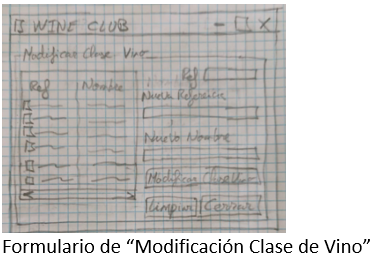 WINE CLUB
Modificar Clase Vino
Ref Nombre
Ref
Nueva Referencia
Nuevo Nombre
Modificar
Limpiar Cerrar
Formulario de “Modificación Clase de Vino”